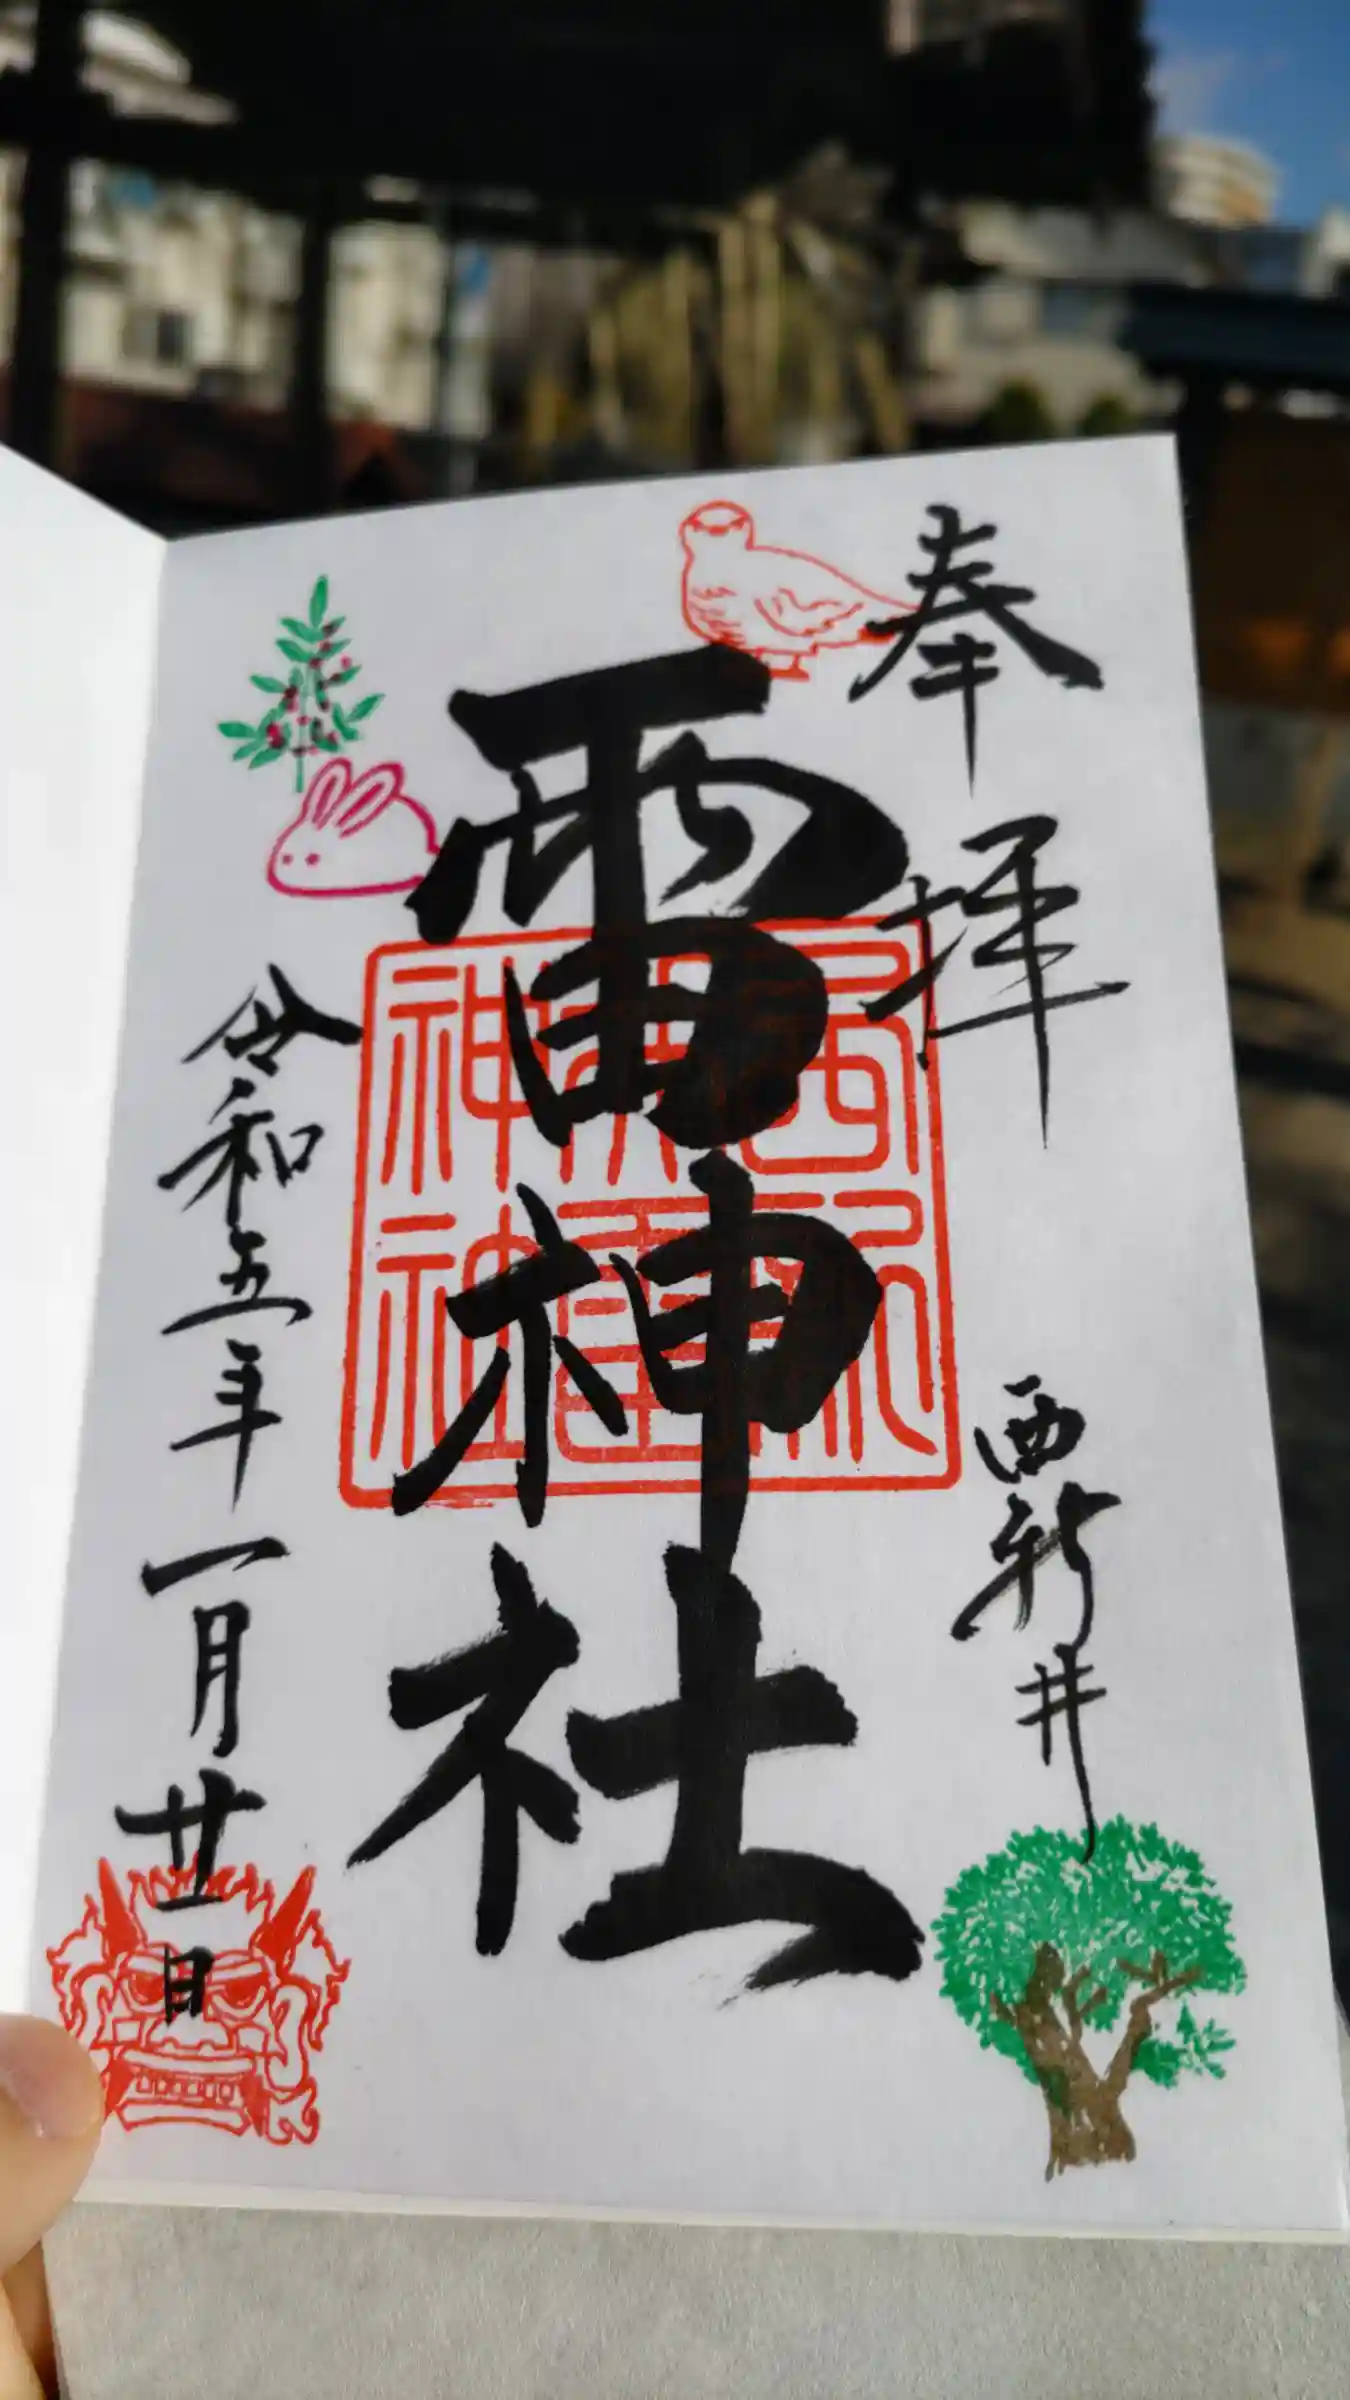 奉拝
西新井
雷神社
雷
神社
令和五年一月廿一日